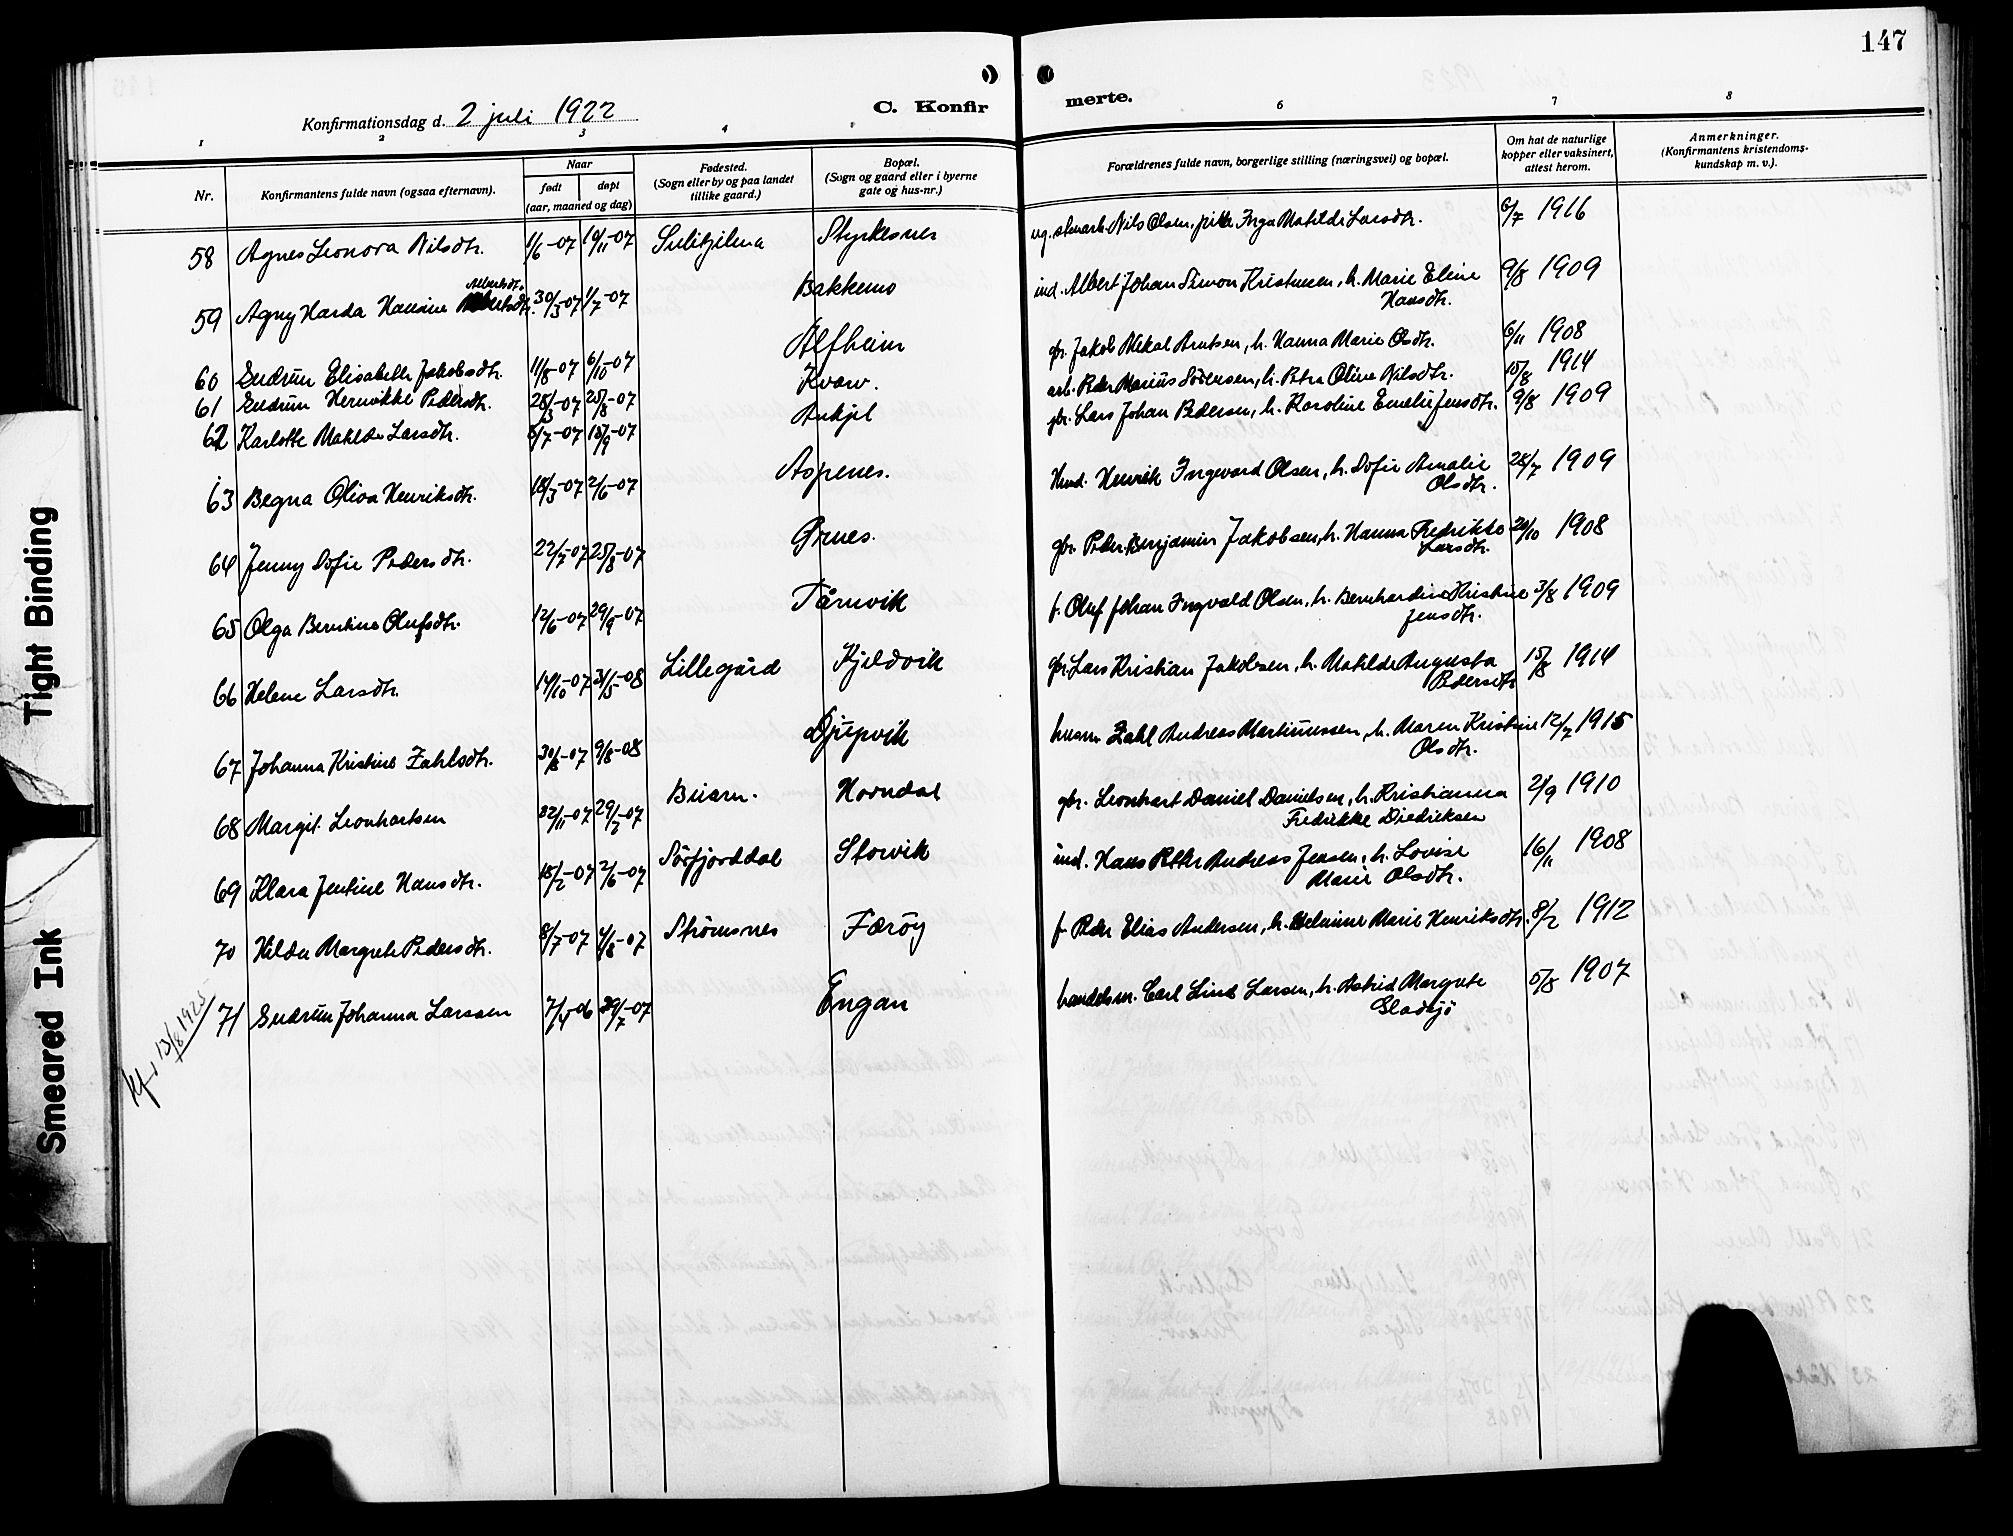 147
Konfirmationsdag d. 2 juli 1922
C. Konfir
merte.
1 2 3 4 6 7 8
Nr.
Konfirmantens fulde navn (ogsaa efternavn).
Naar
født døpt
(aar, maaned og dag)
Fødested.
(Sogn eller by og paa landet
tillike gaard.)
Bopæl.
(Sogn og gaard eller i byerne
gate og hus-nr.)
Forældrenes fulde navn, borgerlige stilling (næringsvei) og bopæl.
Om hat de naturlige
kopper eller vaksinert,
attest herom.
Anmerkninger.
(Konfirmantens kristendoms-
kundskap m. v.).
58 Agnes Leonora Nilsdtr. 1/6-07 10/11-07 Sulitjelma Styrkesnes Nils Olsen, pike Inga Matilde Larsdtr. 6/7 1916
Albertsdtr.
59 Agny Harda Hansine 30/3-07 1/7-07 Bakkemo ind. Albert Johan Simon Kristensen, h. Marie Eline 9/8 1909
Hansdtr.
60 Gudrun Elisabeth Jakobsdtr. 11/8-07 6/10-07 Alfheim gbr. Jakob Mikal Arntsen, h. Hanna Marie Olsdtr. 6/11 1908
61 Gudrun Henrikke Pedersdtr. 28/3-07 25/8-07 Kvarv. arb. Peder Marius Sörensen, h. Petra Oline Nilsdtr. 15/8 1914
62 Karlotte Matilde Larsdtr. 5/7-07 15/9-07 Ankjel gbr. Lars Johan Pedersen, h. Karoline Emelie Jensdtr. 9/8 1909
63 Begna Oliva Henriksdtr. 18/3-07 2/6-07 Aspenes. Henrik Ingevard Olsen, h. Sofie Amalie 28/7 1909
Olsdtr.
64 Jenny Sofie Pedersdtr. 22/7-07 25/8-07 Ørnes. gbr. Peder Benjamin Jakobsen, h. Hanna Fredrikke 20/10 1908
Larsdtr.
65 Olga Berntine Olufsdtr. 12/6-07 29/9-07 Tårnvik f. Oluf Johan Ingvald Olsen, h. Bernhardine Kristine 3/8 1909
Jensdtr.
66 Helene Larsdtr. 14/10-07 31/5-08 Lillegård Kjeldvik gbr. Lars Kristian Jakobsen, h. Matilde Augusta 15/8 1914
Pedersdtr.
67 Johanna Kristine Zahlsdtr. 30/8-07 9/8-08 Djupvik husm. Zahl Andreas Martinussen, h. Maren Kristine 12/7 1915
Olsdtr.
68 Margit Leonhartsen 22/11-07 29/2-07 Beiarn. Horndal gbr. Leonhart Daniel Danielsen, h. Kristianna 2/9 1910
Fredrikke Diedriksen
69 Klara Jentine Hansdtr. 15/2-07 2/6-07 Sörfjorddal Storvik ind. Hans Peter Andreas Jensen, h. Lovise 16/11 1908
Marie Olsdtr.
70 Hilda Margrete Pedersdtr. 8/7-07 4/8-07 Strömsnes Færöy f. Peder Elias Andersen, h. Helmine Marie Henriksdtr. 8/2 1912
71 Gudrun Johanna Larssen 7/4-06 29/7-07 Engan handelsm. Carl Lind Larsen, h. Astrid Margrete 5/8 1907
Gladsjö
kf. 13/8 1925
Tight Binding
Smeared Ink